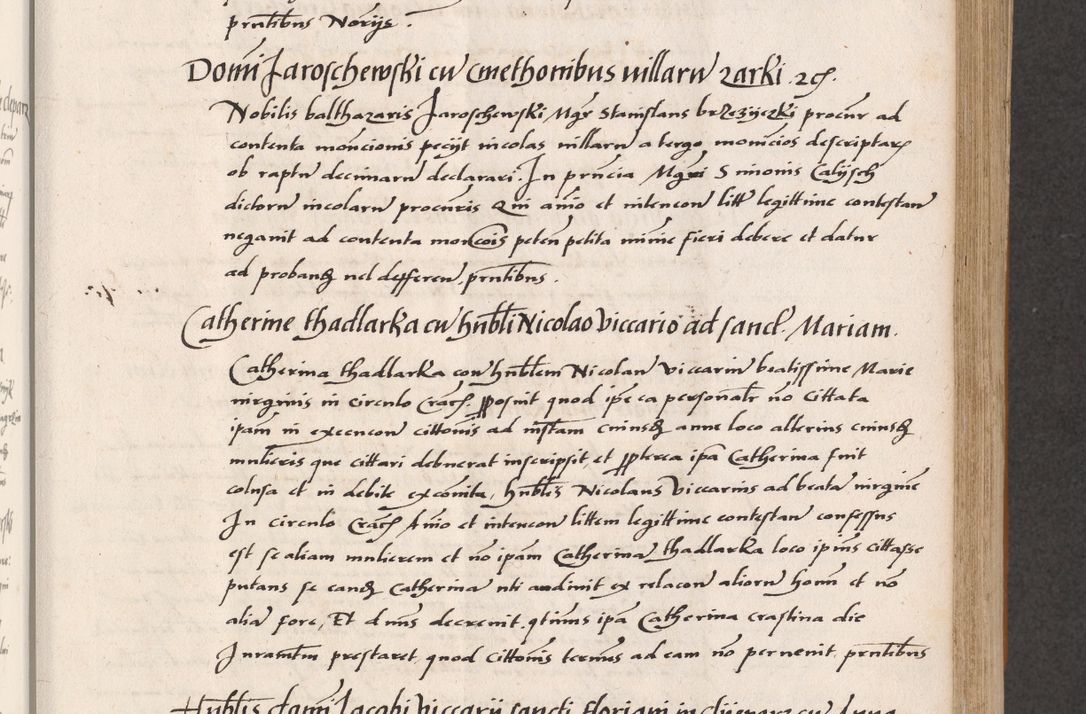 prntibus Norijs.
Domi Jaroschewski cu cmethonibus uillaru zarki. 2c.
Nobilis balthazaris Jaroschewski Mgr Stanislaus brzezijczki procur ad
contenta moncionis pecijt incolas uillaru a tergo monicios descriptar
ob raptu decimaru declarari. In prncia Mgri Simonis Calijsch
dictoru incolaru procuris Qui amo et intencon litt legittime contestan
negauit ad contenta moncois peten petita minime fieri debere et datur
ad proband uel defferen, prntibus.
Catherine thadlarka cu hnbli Nicolao viccario ad sanct. Mariam.
Catherina thadlarka con hnblem Nicolau viccariu beatissime Marie
uirginis in circulo Crac. pposuit quod ipse ea personalr no cittata
ipam in execucon cittonis ad instam cuiusd anne loco alterius cuiusd
mulieris que cittari debuerat inscripsit, et ppterea ipa Catherina fuit
colusa et in debite excomita, hnblis Nicolaus Viccarius ad beata uirgine
In circulo Crac Amo et intencon littem legittime contestan confessus
est se aliam mulierem et no ipam Catherina thadlarka loco ipius cittasse
putans se eand Catherina uti audiuit ex relacon alioru homi et no
alia fore, Et dmns decreuit, qtinus ipa Catherina crastina die
Juramtm prestaret, quod cittonis termus ad eam no peruenit, prntibus
Hnblis dami Jacobi Viccarij sancti floriani in clijeparz cu Anna